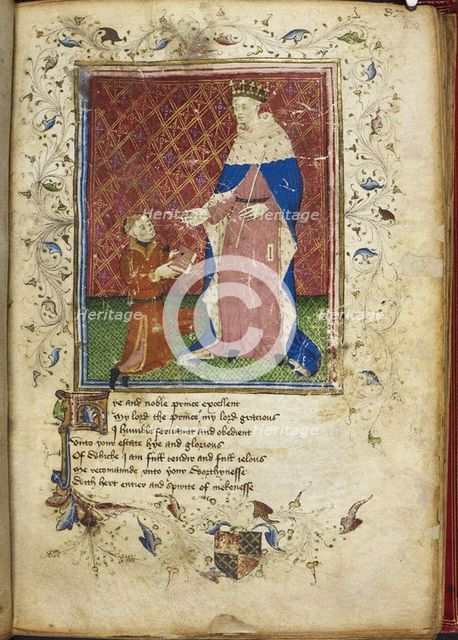 Hye and noble prince excellent
My lord the prince o my lord gracious
I humble servaunt and obedient
Unto your estate hye and glorious
Of whiche I am full tendir and full ielous
Me recommaunde unto your worthynesse
With hert entier and spirite of mekenesse
Heritage
Heritage
Heritage
Heritage
Heritage
Heritage